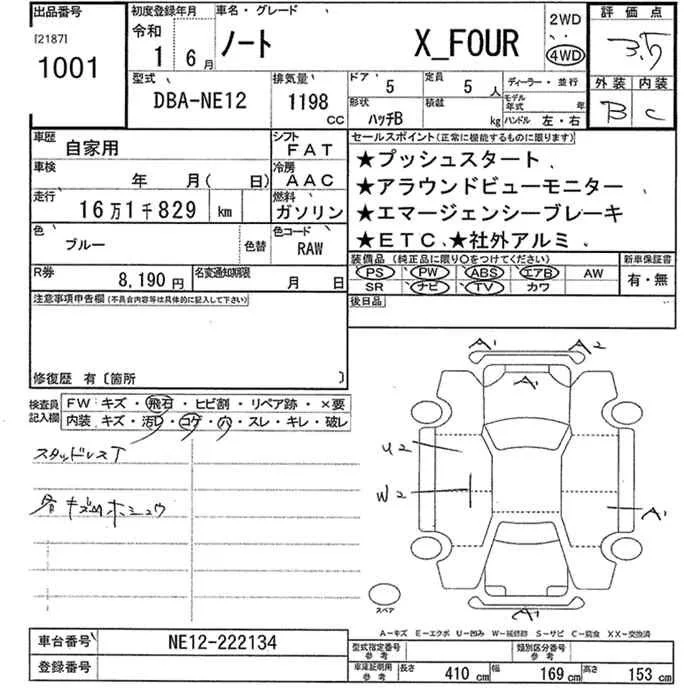 出品番号 初度登録年月 車名・グレード 2WD 評価点
[2187] 令和
1001 1 6月 ノート X_FOUR 4WD 3.5
型式 排気量 ドア 5 定員 5人 ディーラー・並行 外装 内装
DBA-NE12 1198 cc 形状 ハッチB 積載 kg モデル年式 年 B C
ハンドル 左・右
車歴 自家用 シフト FAT セールスポイント(正常に機能するものに限ります)
車検 年 月( 日) 冷房 AAC ★プッシュスタート
走行 16万1千829 km 燃料 ガソリン ★アラウンドビューモニター
★エマージェンシーブレーキ
色 ブルー 色替 色コード RAW ★ETC、★社外アルミ
R券 8,190円 名変通知期限 月 日 装備品(純正品に限り〇をつけてください) 新車保証書
PS PW ABS エアB AW 有・無
SR ナビ TV カワ
注意事項申告欄(不具合内容等は具体的に記入して下さい) 後日品
修復歴 有〔箇所 〕
検査員記入欄 FW:キズ・飛石・ヒビ割・リペア跡・×要
内装:キズ・汚レ・コゲ・穴・スレ・キレ・破レ
スタッドレスT
A1 A2
A1
U2
W2
A1
A1
スペア
A-キズ E-エクボ U-凹み W-補修跡 S-サビ C-腐食 XX-交換済
車台番号 NE12-222134 型式指定番号 参考 類別区分番号 参考
登録番号 車庫証明用 参考 長さ 410cm 幅 169cm 高さ 153cm